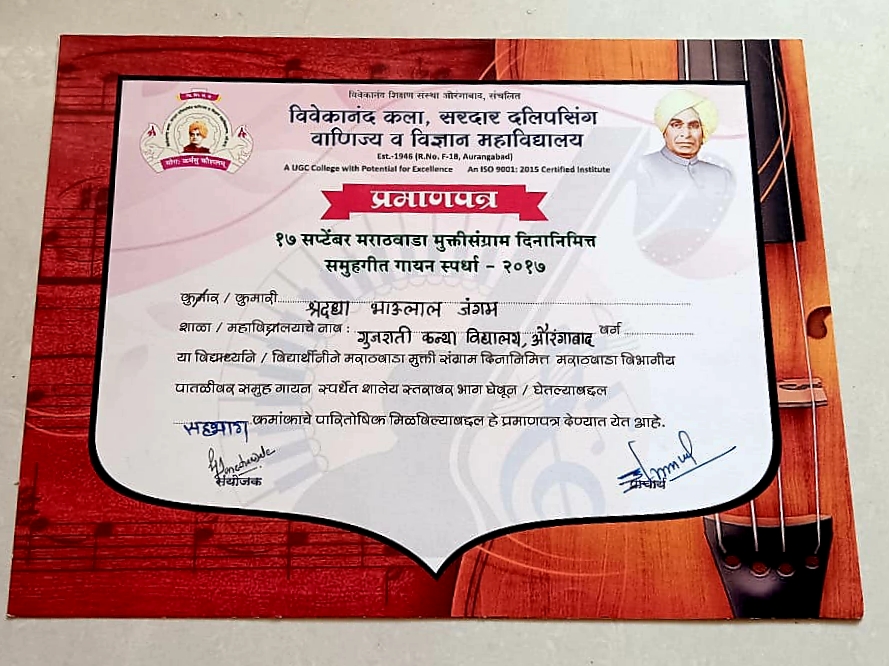 विवेकानंद शिक्षण संस्था औरंगाबाद, संचलित
विवेकानंद कला, सरदार दलिपसिंग
वाणिज्य व विज्ञान महाविद्यालय
Est.-1946 (R.No. F-18, Aurangabad)
A UGC College with Potential for Excellence An ISO 9001: 2015 Certified Institute
वि. शि. सं. औ.
योग: कर्मसु कौशलम्
प्रमाणपत्र
१७ सप्टेंबर मराठवाडा मुक्तीसंग्राम दिनानिमित्त
समुहगीत गायन स्पर्धा - २०१७
कुमार / कुमारी श्रद्धा भाऊलाल जंगम
शाळा / महाविद्यालयाचे नाव : गुजराती कन्या विद्यालय, औरंगाबाद वर्ग
या विद्यार्थ्याने / विद्यार्थीनीने मराठवाडा मुक्ती संग्राम दिनानिमित्त मराठवाडा विभागीय
पातळीवर समुह गायन स्पर्धेत शालेय स्तरावर भाग घेवून / घेतल्याबद्दल
सहभाग क्रमांकाचे पारितोषिक मिळविल्याबद्दल हे प्रमाणपत्र देण्यात येत आहे.
संयोजक
प्राचार्य